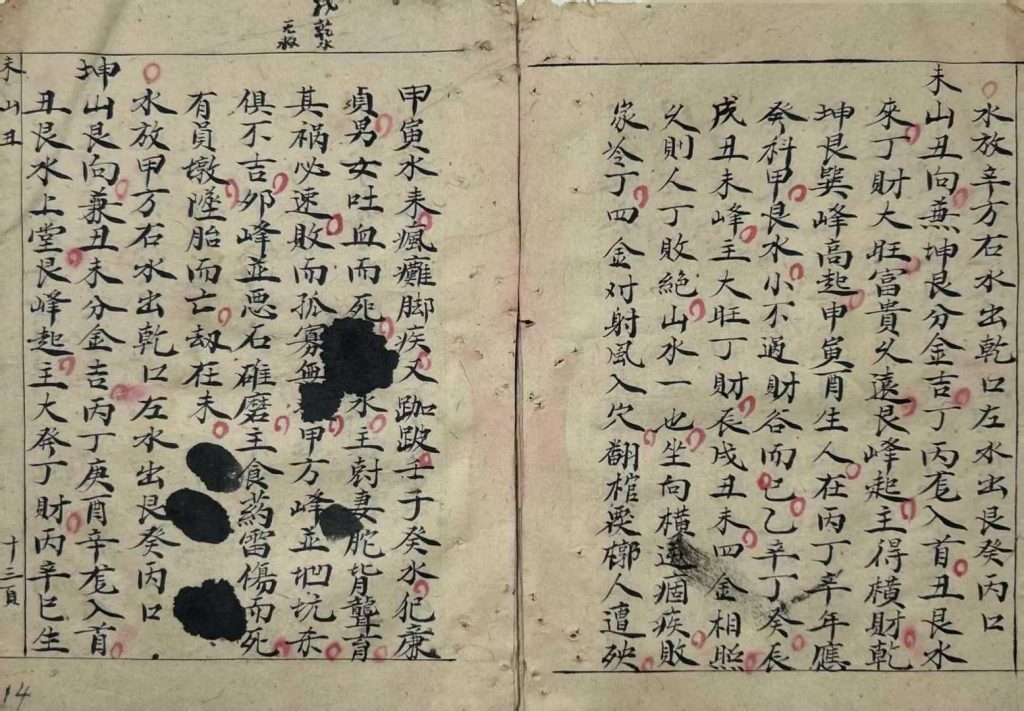 水放辛方石水出乾口左水出艮癸丙口
未山丑向兼坤艮分金吉丁丙尨入首丑艮水
來丁財大旺富貴久遠艮峰起主得橫財乾
坤艮巽峰高起申寅酉生人在丙丁辛年應
發科甲艮水小不過財谷而已乙辛丁癸辰
戌丑未峰主大旺丁財辰戌丑未四金相照
久則人丁敗絕山水一也坐向橫逆痼疾敗
家冷丁四金对射風入穴翻棺覆槨人遭殃
戌乾水
无救
甲寅水來瘋癱脚疾又跏跛壬子癸水犯廉
貞男女吐血而死水主尅妻駝背聾盲
其禍必速敗而孤寡無甲方峰並凹坑
俱不吉夘峰並恶石碓磨主食药雷傷而死
有員墩墜胎而亡劫在未
水放甲方石水出乾口左水出艮癸丙口
坤山艮向兼丑未分金吉丙丁庚酉辛尨入首
丑艮水上堂艮峰起主大發丁財丙辛巳生
未山丑
十三頁
14